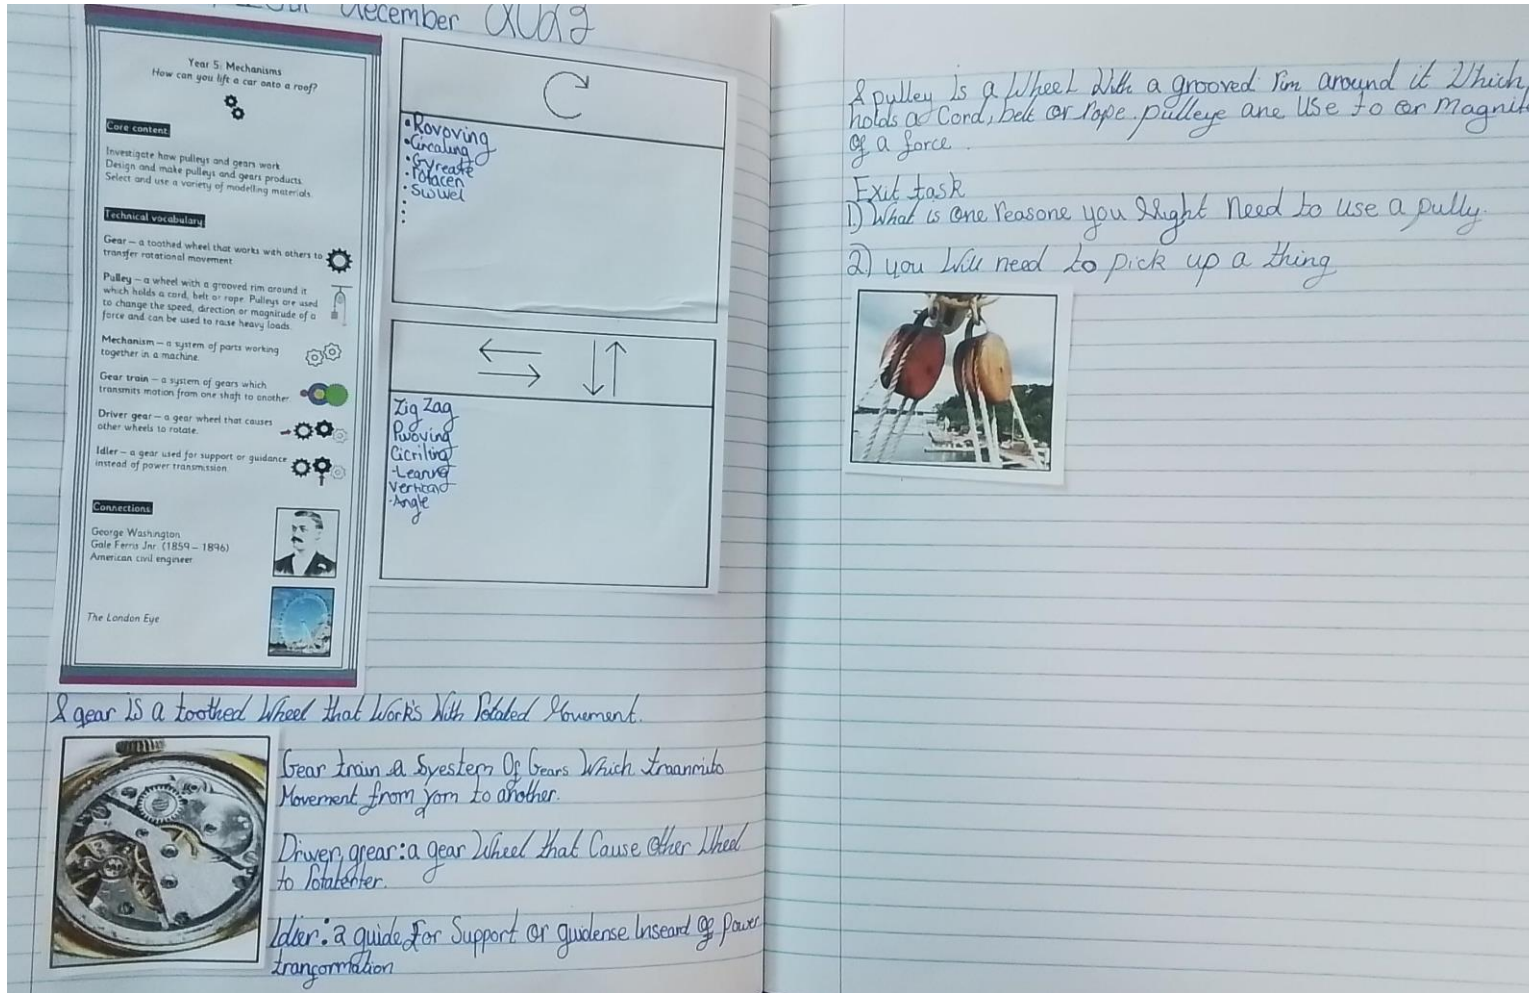 December
Year 5: Mechanisms
How can you lift a car onto a roof?
Core content
Investigate how pulleys and gears work
Design and make pulleys and gears products.
Select and use a variety of modelling materials.
Technical vocabulary
Gear – a toothed wheel that works with others to
transfer rotational movement
Pulley – a wheel with a grooved rim around it
which holds a cord, belt or rope. Pulleys are used
to change the speed, direction or magnitude of a
force and can be used to raise heavy loads.
Mechanism – a system of parts working
together in a machine.
Gear train – a system of gears which
transmits motion from one shaft to another.
Driver gear – a gear wheel that causes
other wheels to rotate.
Idler – a gear used for support or guidance
instead of power transmission
Connections
George Washington
Gale Ferris Jnr (1859 – 1896)
American civil engineer
The London Eye
• Rovoving
• Circaling
• Gyreaste
• Rotacen
• Swwel
Zig Zag
Pwoving
Cicriling
-Leaning
Vertical
-Angle
A gear is a toothed wheel that work's with Rotated Movement.
Gear train a Syestem Of Gears Which
Movement from to another.
Driwer grear: a gear Wheel that Cause Other Wheel
to Rotatenter.
Idler: a guide for Support or guidense Inseard of Power
trangormation
A pulley is a Wheel With a grooved rim around it Which
holds a Cord, belt or rope. pulleye are Use to or Magnit
of a force.
Exit task
1) What is one reasone you Might need to use a pully.
2) you Will need to pick up a thing